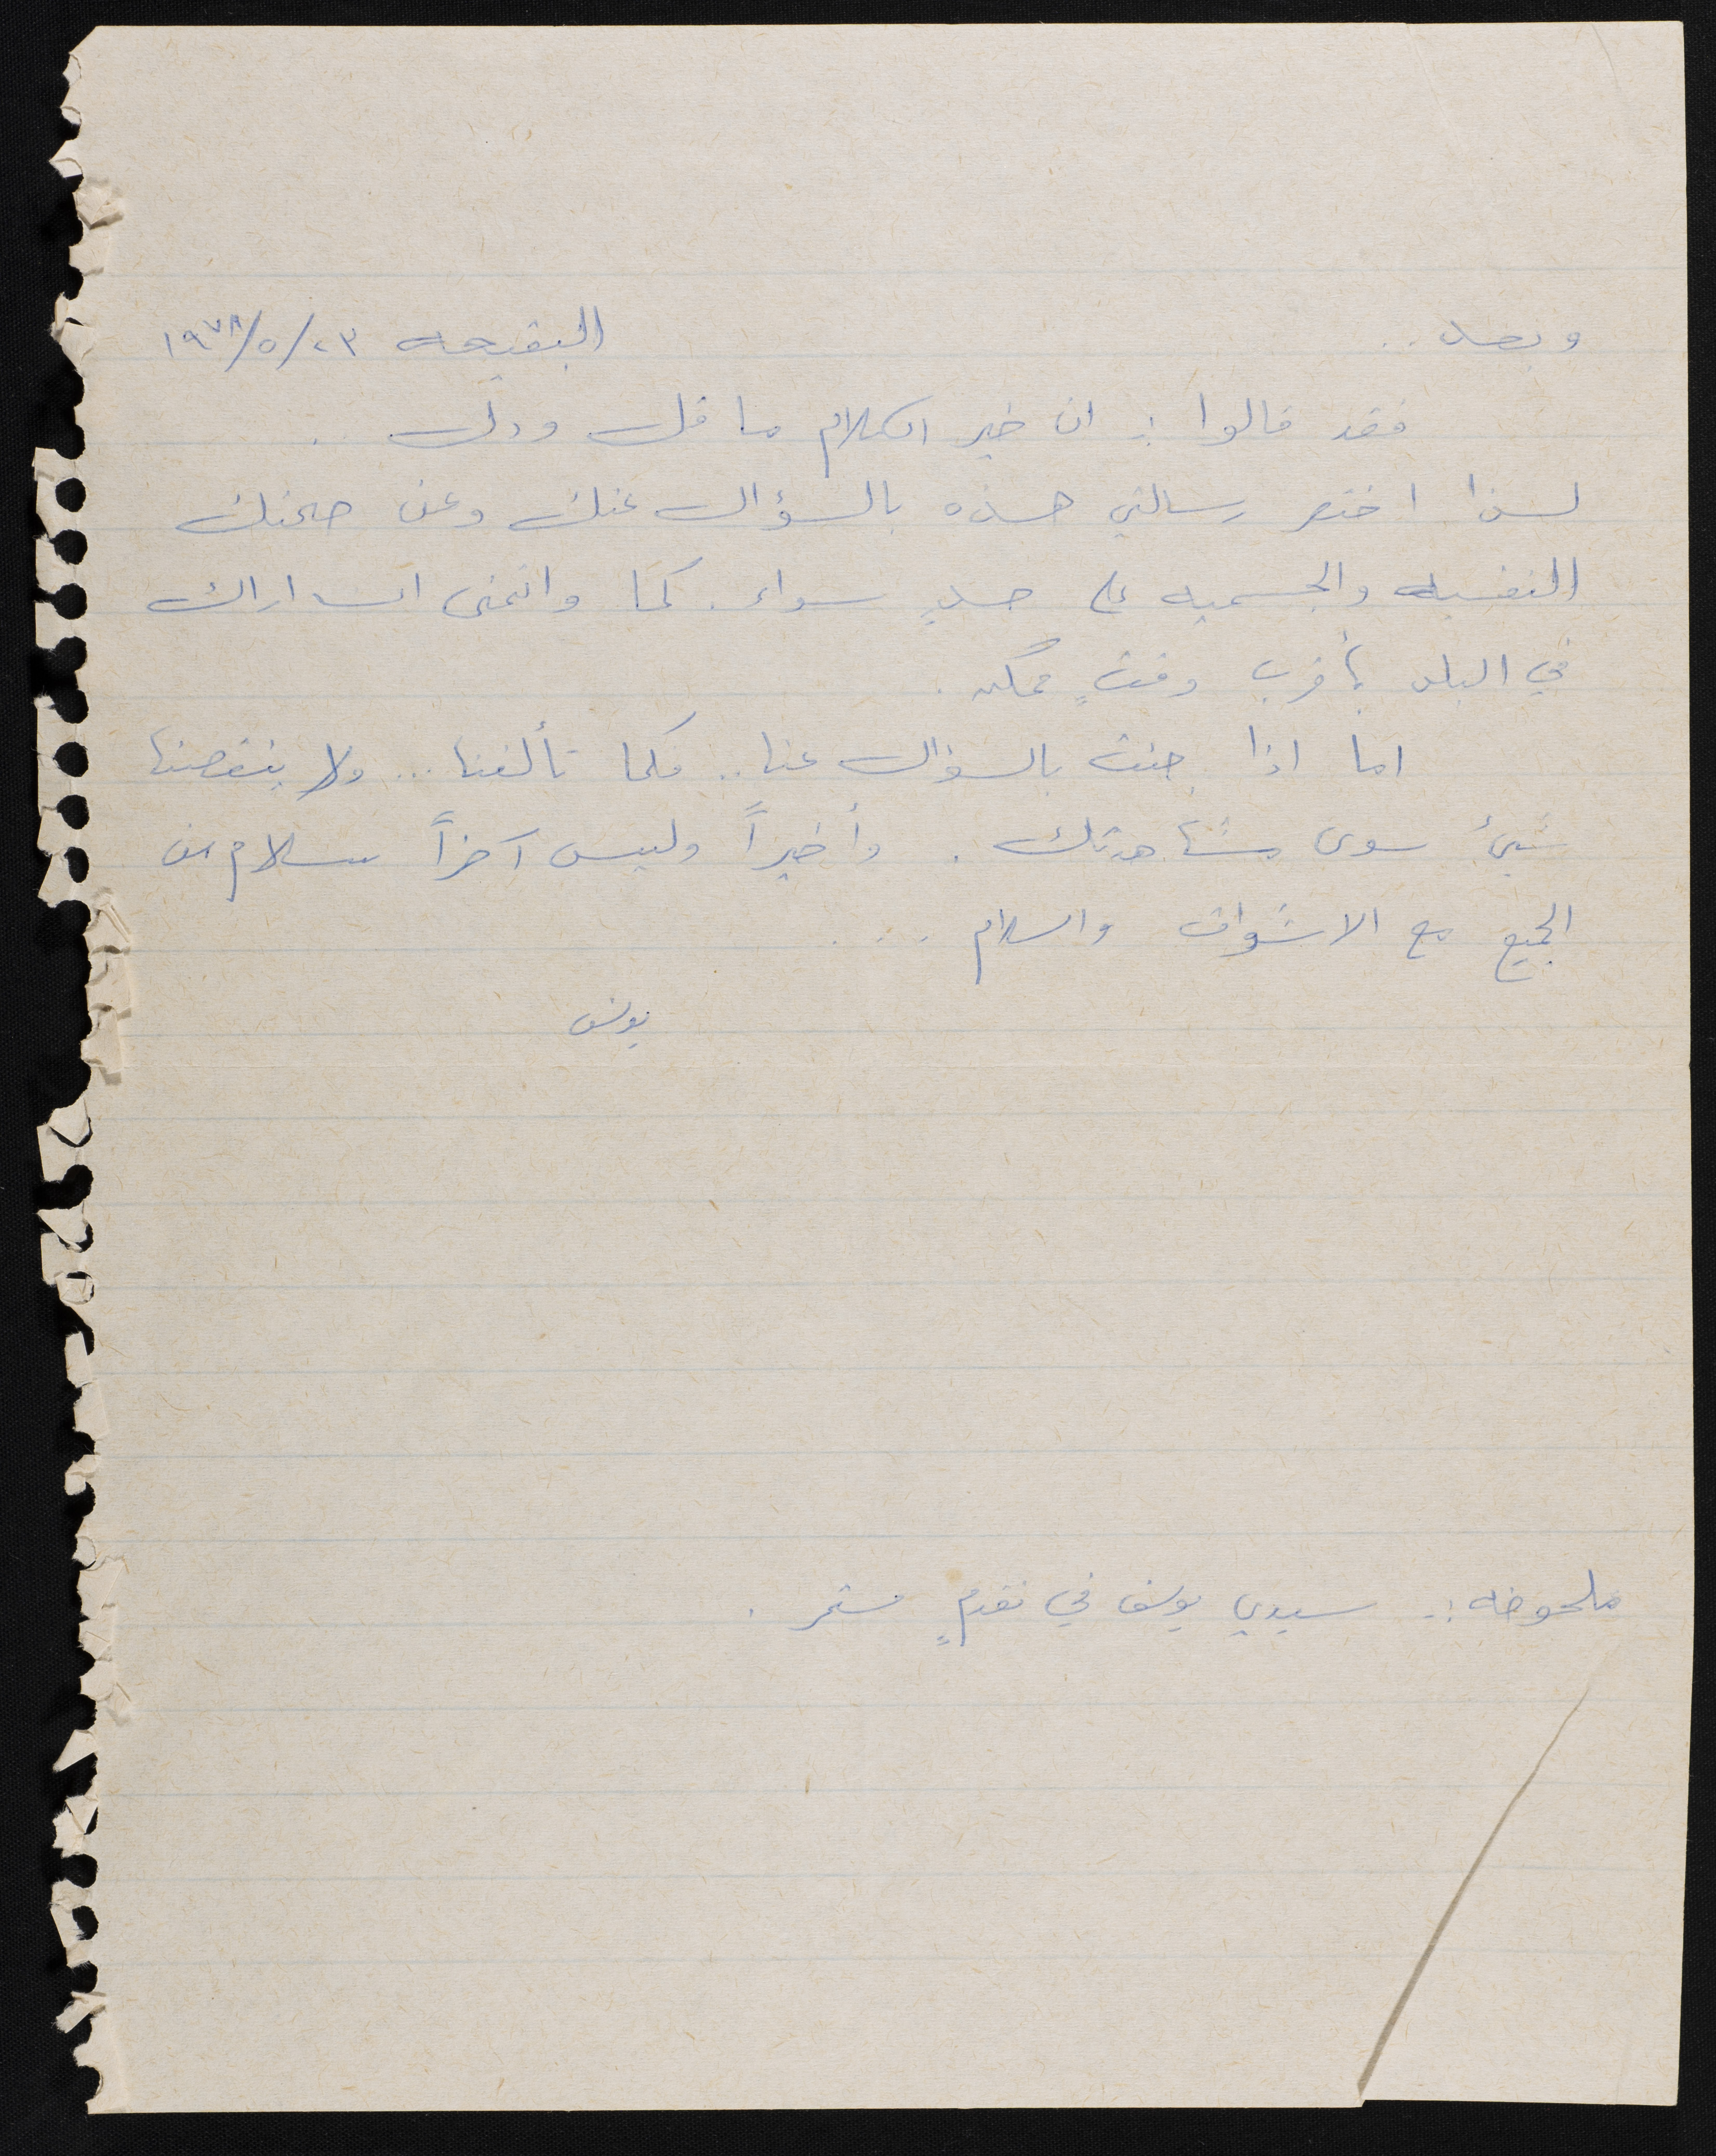 وبعد .. البقيعه ٢٣/٥/١٩٧٨
فقد قالوا :- ان خير الكلام ما قل ودل .
لهذا اختصر رسالتي هذه بالسؤال عنك وعن صحتك
النفسيه والجسميه على حدٍ سواء . كما واتمنى ان اراك
في البلد بأقرب وقتٍ ممكن .
اما اذا جئت بالسؤال عنا .. فكما تألفنا ... ولا ينقصنا
شيئ سوى مشاهدتك . وأخيراً وليس آخراً سلام من
الجميع مع الاشواق والسلام ...
ملحوظه :- سيدي يوسف في تقدمٍ مستمر .